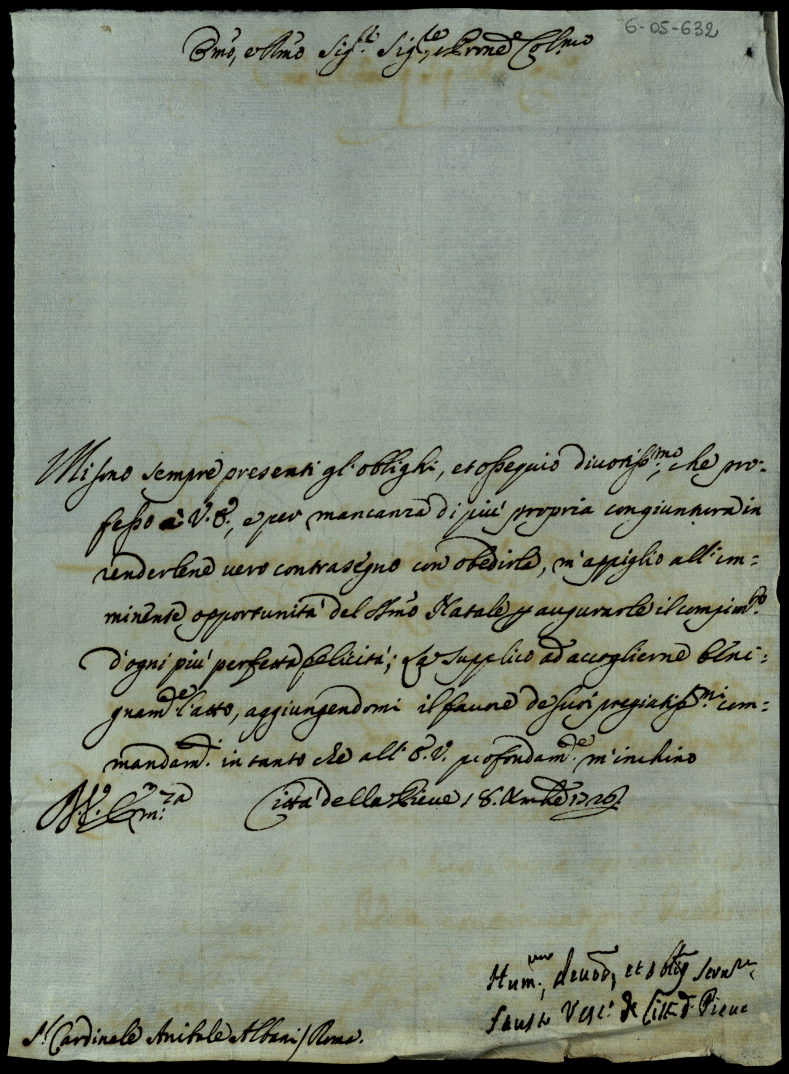 6-05-632
Emo, e Rmo Sig.re Sig.re, e Prone Col.mo
Mi sono sempre presenti gl'oblighi, et ossequio divotiss.mo, che pro-
fesso à V. E., e per mancanza di più propria congiuntura in
renderlene vero contrasegno con obedirla, m'appiglio all'im-
minente opportunità del Smo Natale p augurarle il compim.to
d'ogni più perfetta felicità; La supplico ad accoglierne beni-
gnam.e l'atto, aggiungendomi il favore de suoi pregiatiss.mi com-
mandam.ti in tanto che all'E. V. profondam.e m'inchino
Città della Pieve 18. Xmbre 1726.
Hum.mo, devod, et oblig Serv.re
Fausto Vesc.o di Citt. d. Pieve
S.r Cardinale Anibale Albani / Roma.